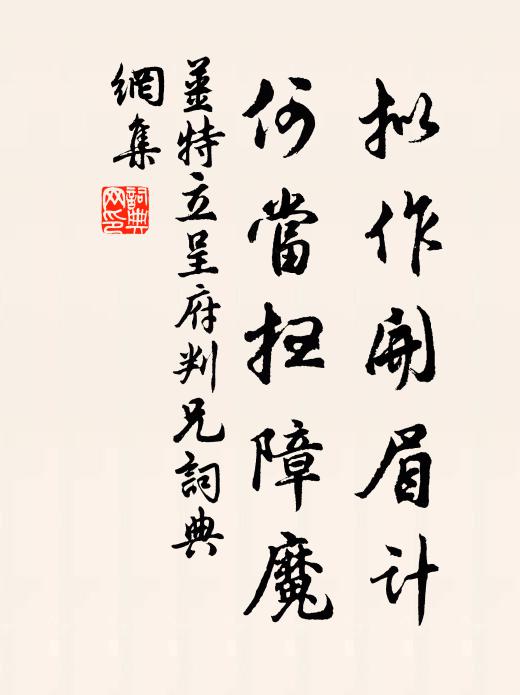 拟作開眉計
何當扫障魔
姜特立呈府判兄詞典
網集
詞典
网印